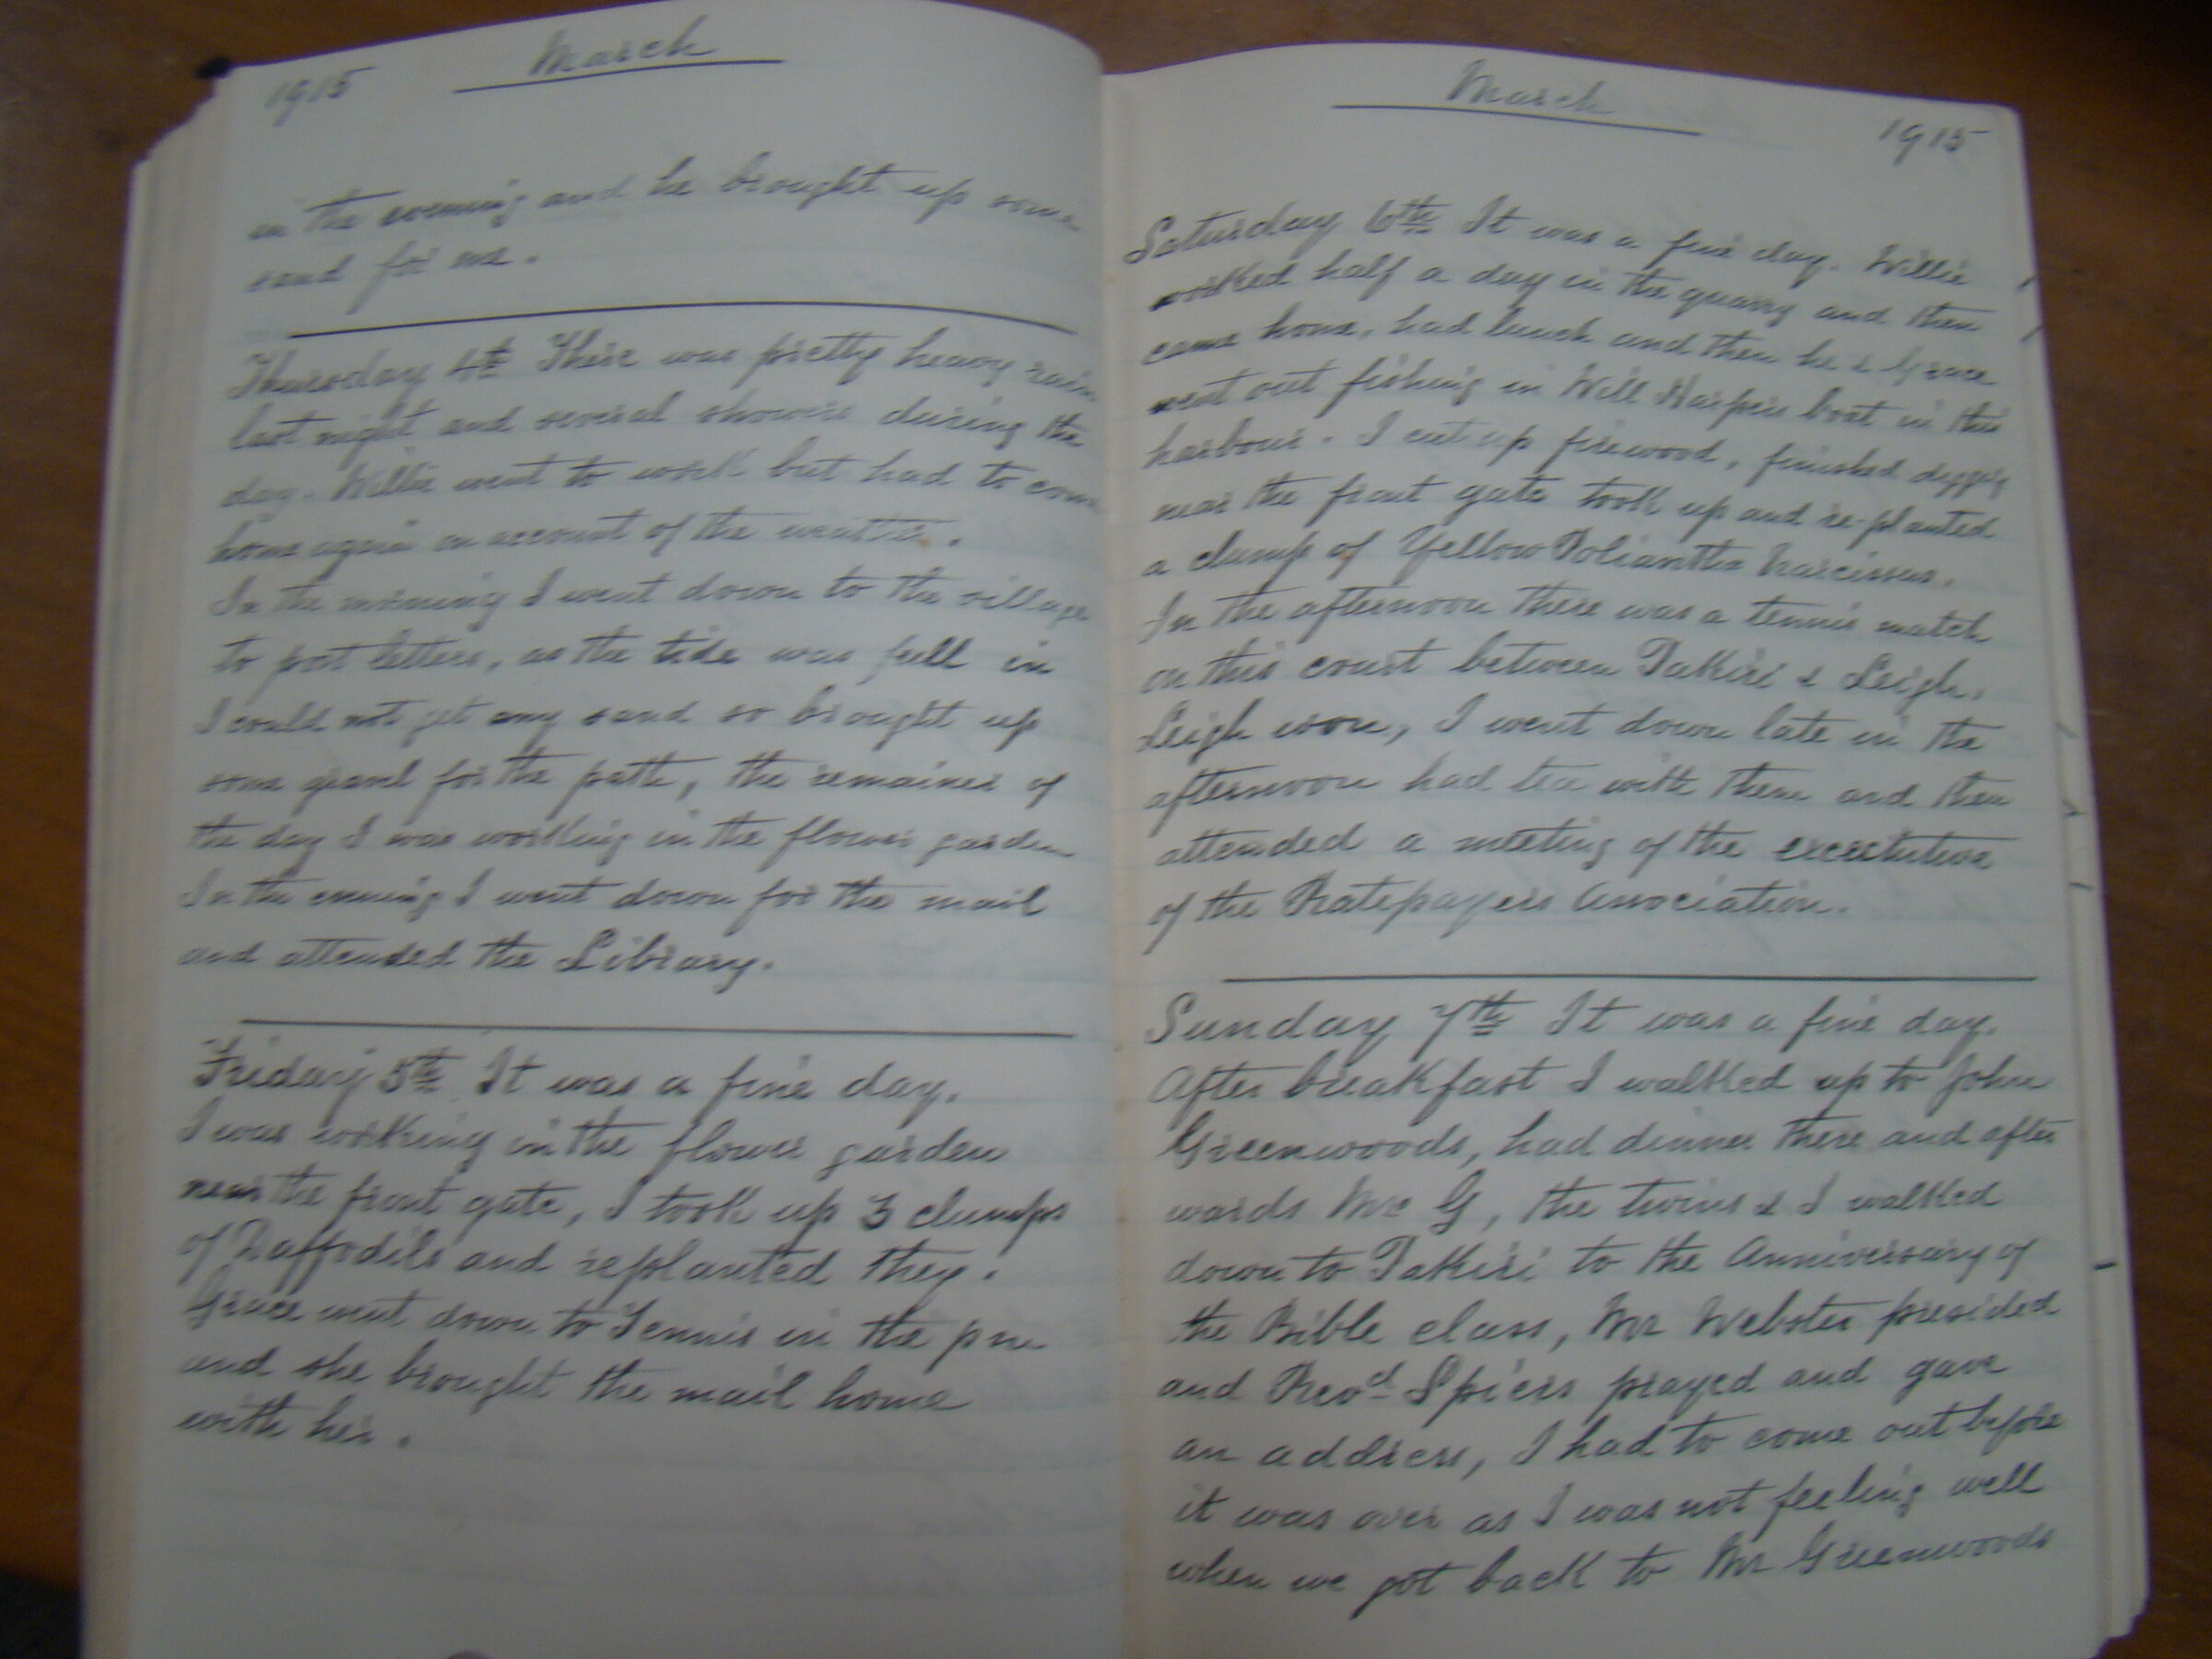 1915 March
in the evening and he brought up some
sand for me.
Thursday 4th There was pretty heavy rain
last night and several showers during the
day. Willie went to work but had to come
home again on account of the weather.
In the morning I went down to the village
to post letters, as the tide was full in
I could not get any sand so brought up
some gravel for the path, the remainer of
the day I was working in the flower garden
In the evening I went down for the mail
and attended the Library.
Friday 5th It was a fine day.
I was working in the flower garden
near the front gate, I took up 3 clumps
of Daffodils and replanted they.
Grace went down to Tennis in the pm
and she brought the mail home
with her.
March 1915
Saturday 6th It was a fine day. Willie
worked half a day in the quarry and then
came home, had lunch and then he & Grace
went out fishing in Will Harpers boat in the
harbour. I cut up firewood, finished digging
near the front gate took up and re-planted
a clump of Yellow Poliantha Narcissus.
In the afternoon there was a tennis match
on this court between Pakiri & Leigh,
Leigh won, I went down late in the
afternoon had tea with them and then
attended a meeting of the
of the Ratepayers Association.
Sunday 7th It was a fine day.
After breakfast I walked up to John
Greenwoods, had dinner there and after
wards Mr G, the twins & I walked
down to Pakiri to the Anniversary of
the Bible class, Mr Webster presided
and Revd Spiers prayed and gave
an address, I had to come out before
it was over as I was not feeling well
when we got back to Mr Greenwoods